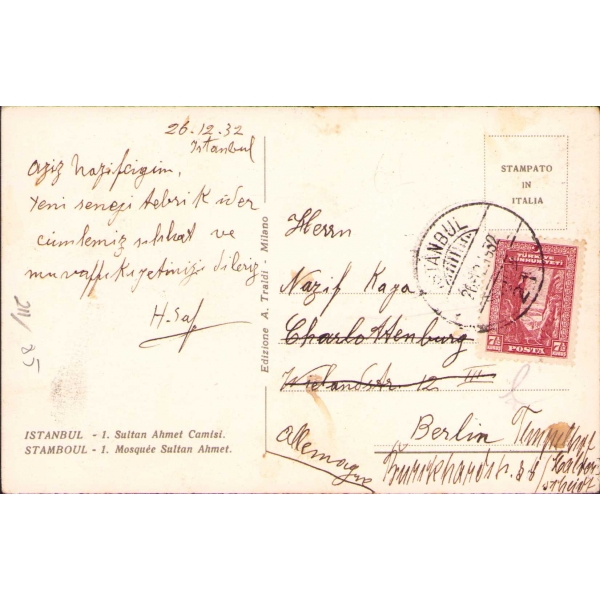 26.12.32
Istanbul
Aziz Nazifciğim,
Yeni seneyi tebrik ider
cümlemiz sıhhat ve
muvaffukıyetinizi dileriz
H. Saf
211/
85
ISTANBUL - 1. Sultan Ahmet Camisi.
STAMBOUL - 1. Mosquée Sultan Ahmet.
Edizione A. Traldi - Milano
STAMPATO
IN
ITALIA
ISTANBUL
TÜRKİYE
CUMHURİYETİ
7½ 7½
POSTA
Herrn
Nazif Kaya
Charlottenburg
Wielandstr 12 III
Berlin Tempelhof
Allemagne